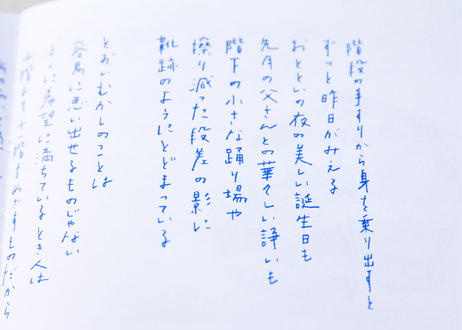 階段の手すりから身を乗り出すと
ずっと昨日がみえる
おとといの夜の美しい誕生日も
先月の父さんとの華々しい諍いも
階下の小さな踊り場や
擦り減った段差の影に
靴跡のようにとどまっている
とおいむかしのことは
容易に思い出せるものじゃない
とくに希望に満ちているとき人は